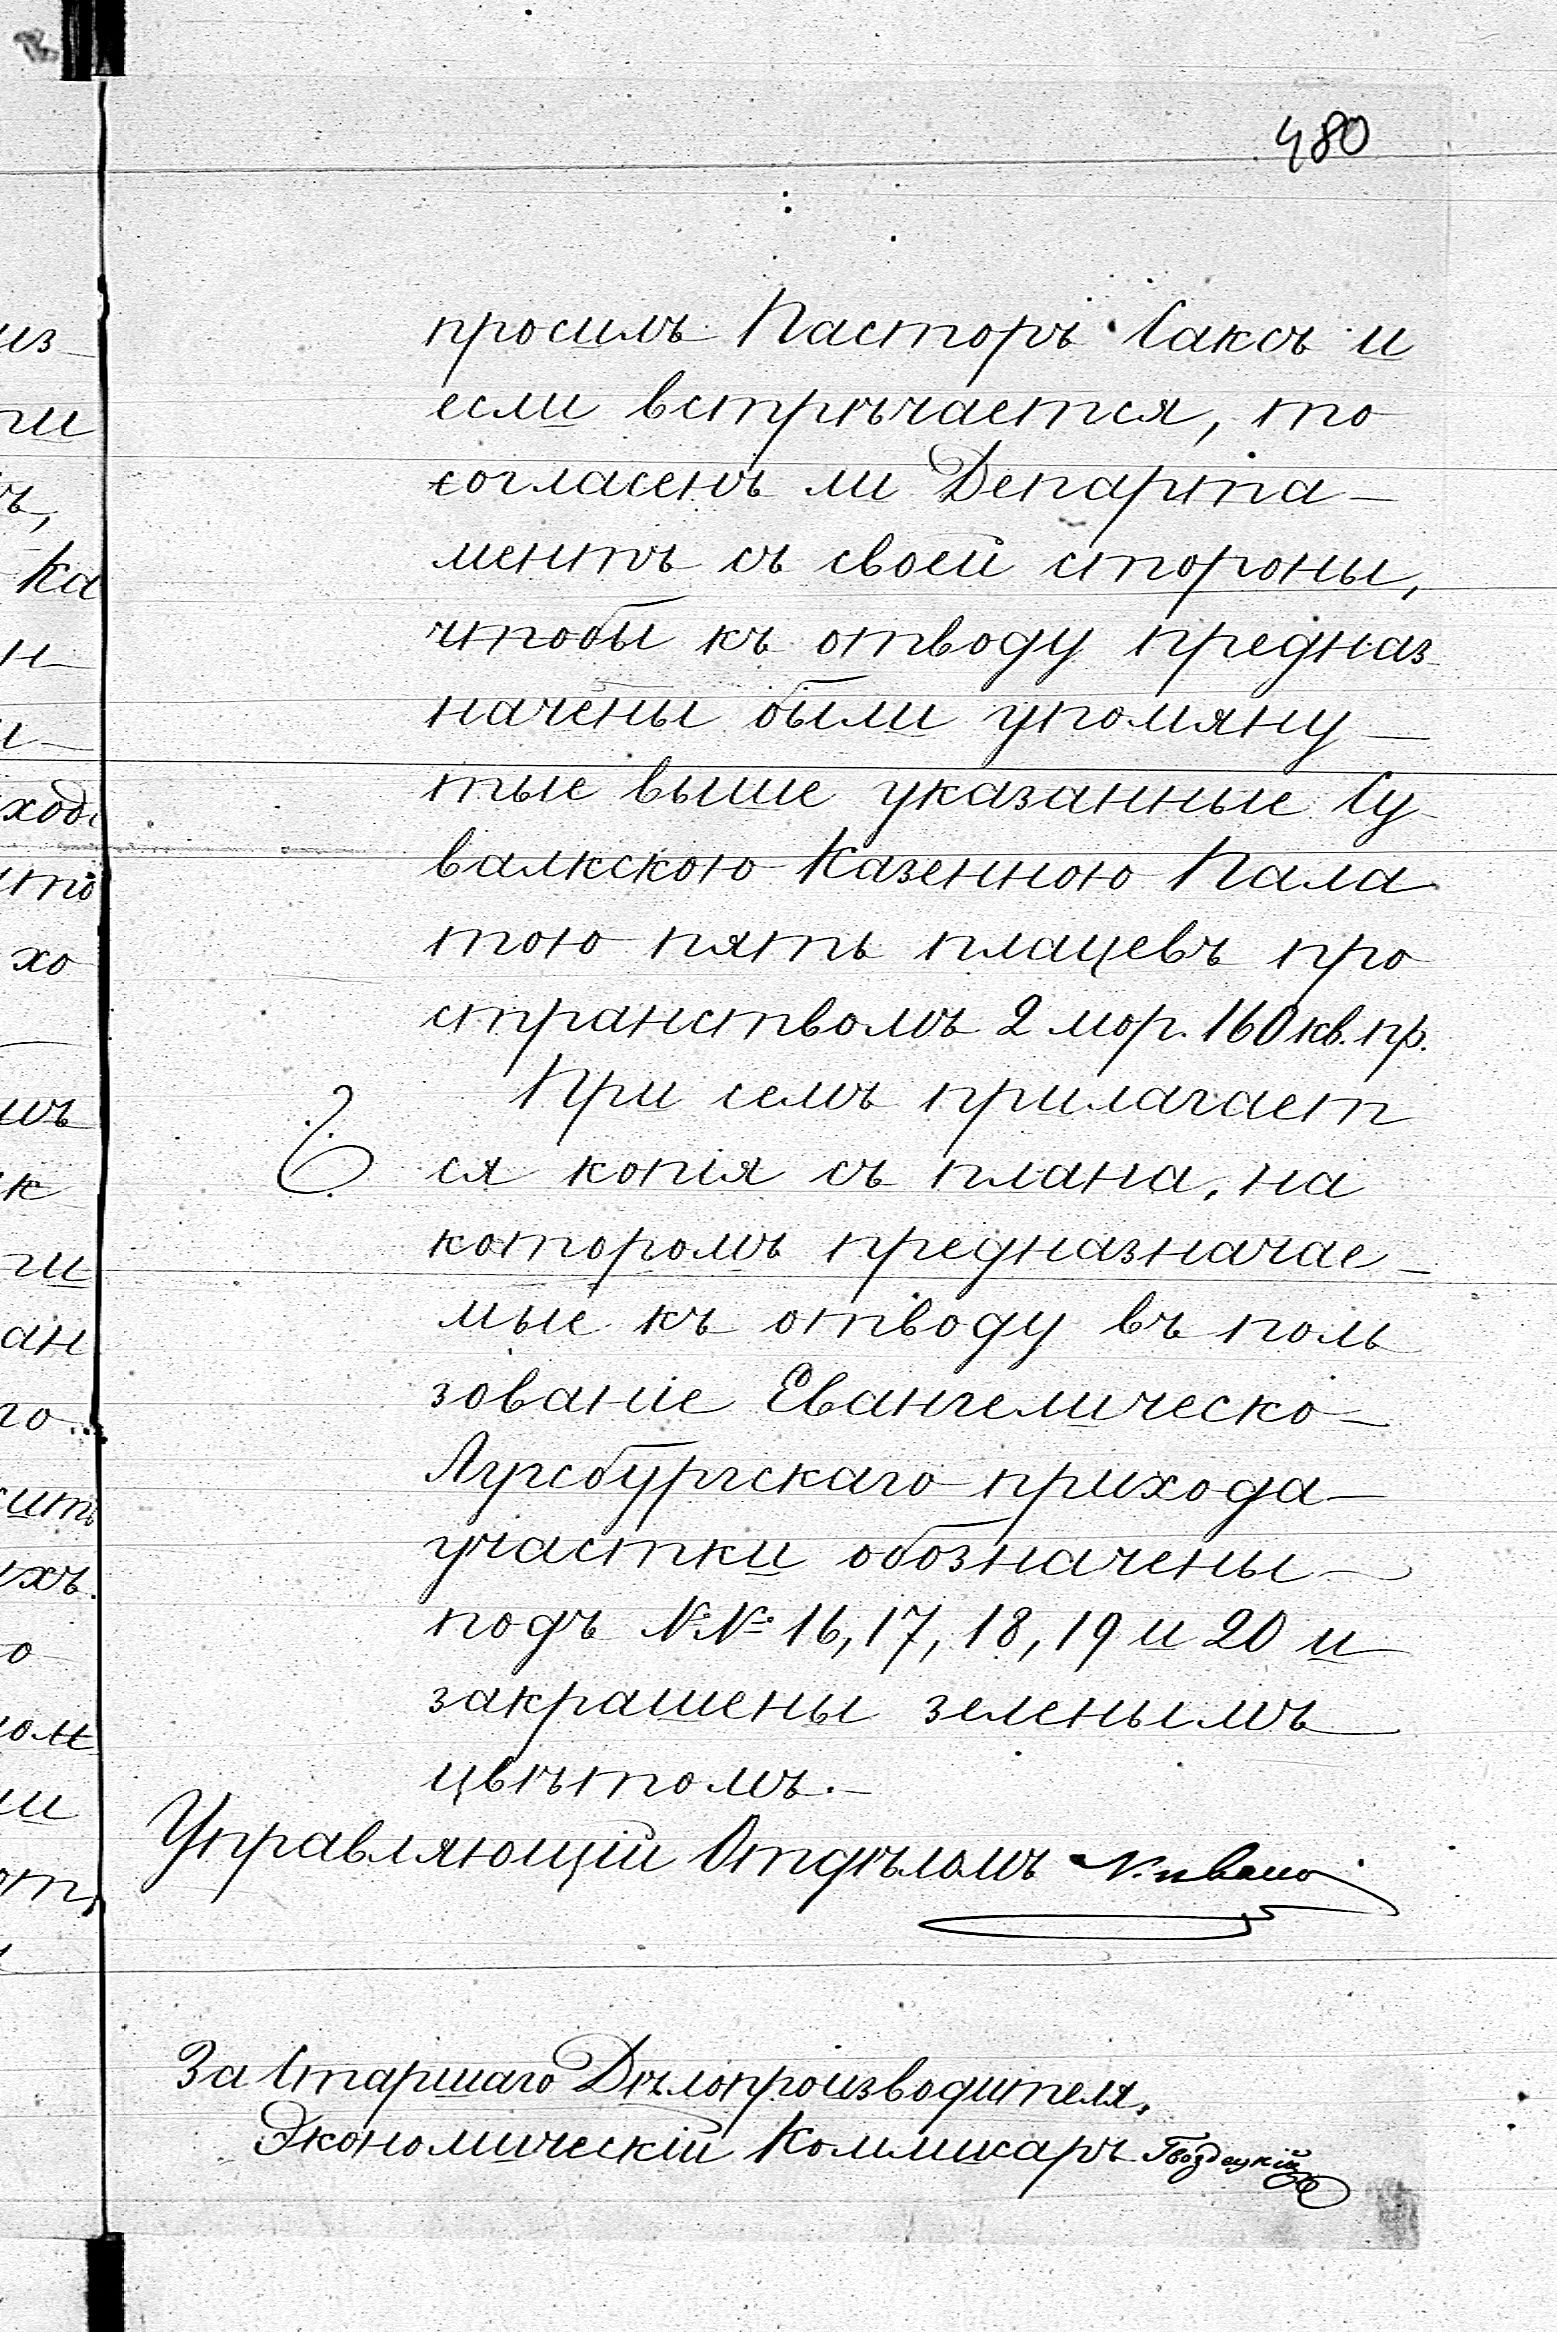 480
просилъ Пасторъ Саксъ и
если встрѣчается, то
согласенъ ли Департа-
ментъ съ своей стороны,
чтобы къ отводу предназ-
начены были упомяну-
тые выше указанные Су-
валкскою Казенною Пала
тою пять плацевъ про
странствомъ 2 мор. 160 кв. пр.
При семъ прилагает
ся копія съ плана, на
которомъ предназначае-
мые къ отводу въ поль
зованіе Евангелическо-
Аугсбургскаго прихода-
участки обозначены
подъ №№ 16, 17, 18, 19 и 20 и
закрашены зеленымъ
цвѣтомъ.-
Управляющій Отдѣломъ
За Старшаго Дѣлопроизводителя,
Экономическій Коммисаръ Гвоздецкій